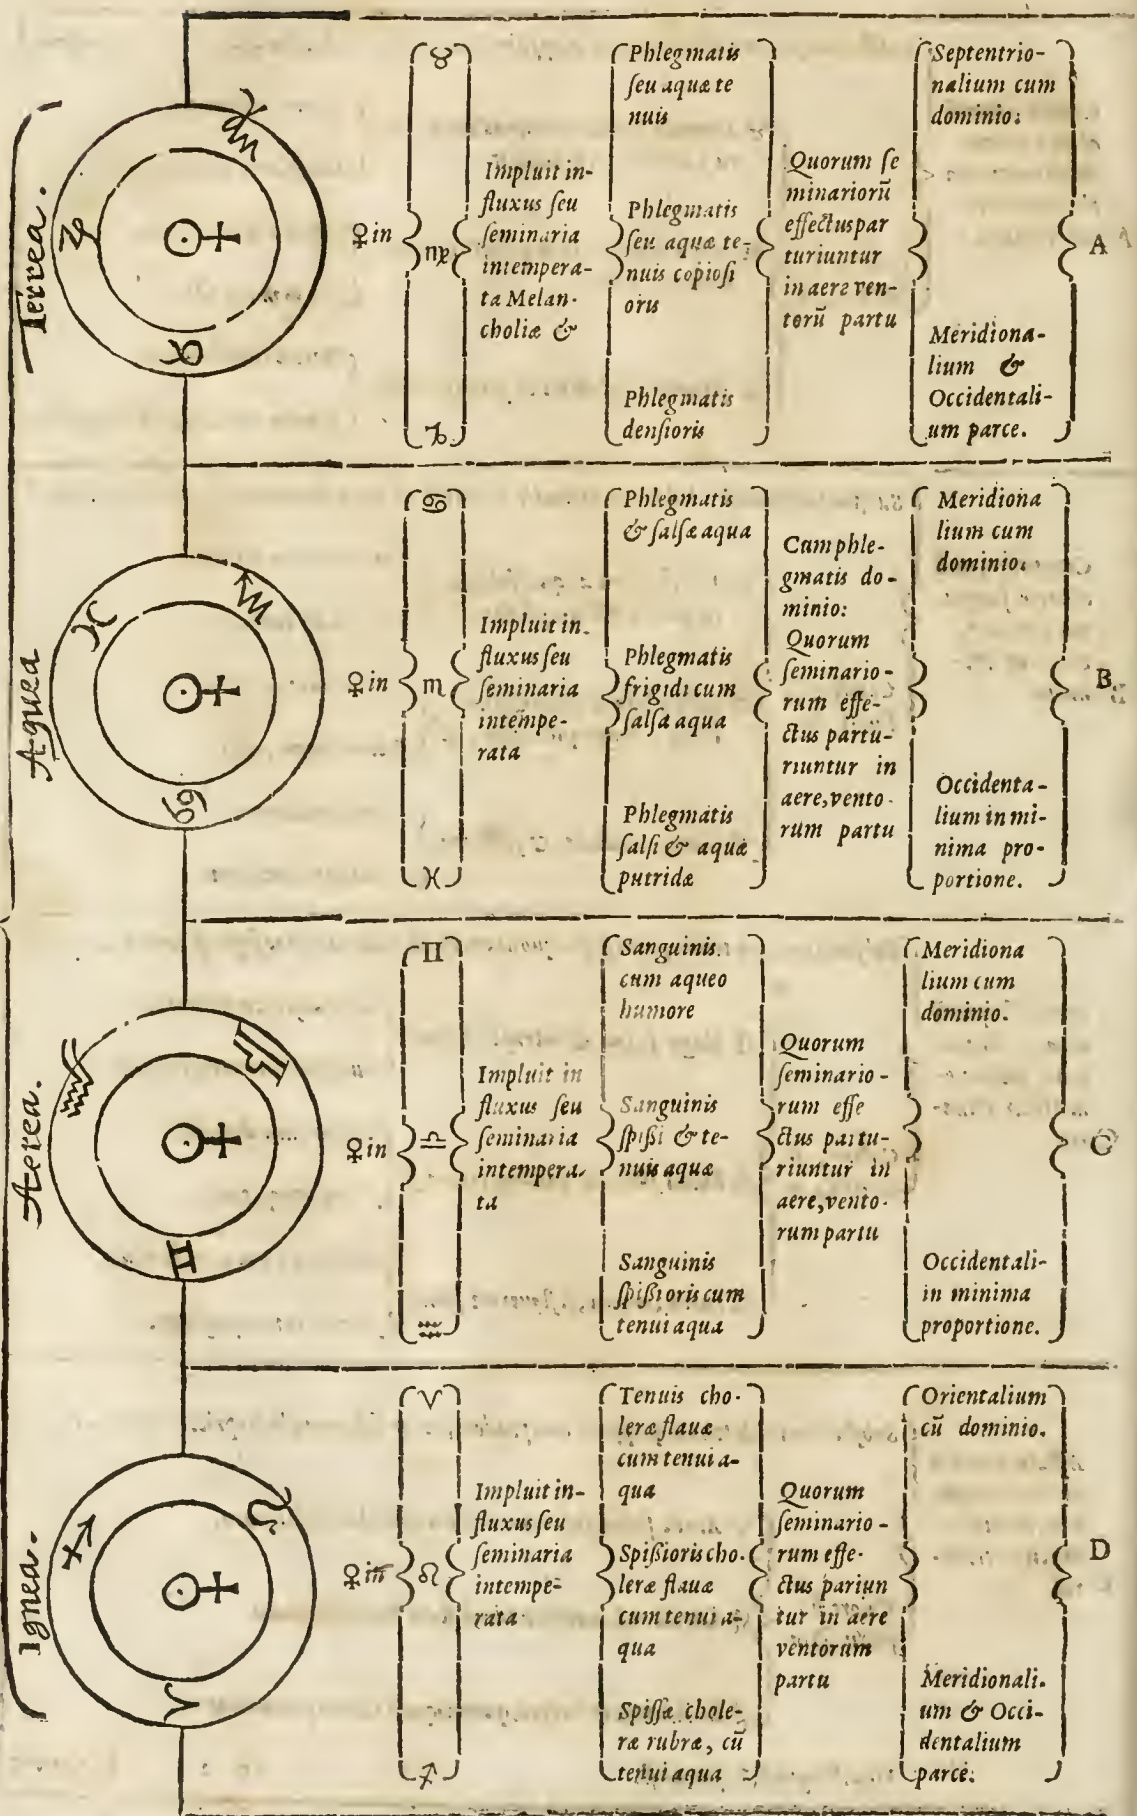 Terrea.
♍
♑
♉
♀ in
♉
♍
♑
Impluit in-
fluxus ſeu
ſeminaria
intempera-
ta Melan-
choliæ &
Phlegmatis
ſeu aquæ te
nuis
Phlegmatis
ſeu aquæ te-
nuis copioſi
oris
Phlegmatis
denſioris
Quorum ſe
minariorū
effectus par
turiuntur
in aere ven-
torū partu
Septentrio-
nalium cum
dominio:
Meridiona-
lium &
Occidentali-
um parce.
A
Aquea
♓
♏
♋
♀ in
♋
♏
♓
Impluit in-
fluxus ſeu
ſeminaria
intempe-
rata
Phlegmatis
& ſalſæ aqua
Phlegmatis
frigidi cum
ſalſa aqua
Phlegmatis
ſalſi & aquæ
putridæ
Cum phle-
gmatis do-
minio:
Quorum
ſeminario-
rum effe-
ctus partu-
riuntur in
aere, vento-
rum partu
Meridiona
lium cum
dominio.
Occidenta-
lium in mi-
nima pro-
portione.
B
Aerea.
♒
♎
♊
♀ in
♊
♎
♒
Impluit in
fluxus ſeu
ſeminaria
intempera-
ta
Sanguinis
cum aqueo
humore
Sanguinis
ſpißi & te-
nuis aquæ
Sanguinis
ſpißioris cum
tenui aqua
Quorum
ſeminario-
rum effe
ctus partu-
riuntur in
aere, vento-
rum partu
Meridiona
lium cum
dominio.
Occidentali-
in minima
proportione.
C
Ignea.
♐
♌
♈
♀ in
♈
♌
♐
Impluit in-
fluxus ſeu
ſeminaria
intempe-
rata
Tenuis cho-
leræ flauæ
cum tenui a-
qua
Spißioris cho-
leræ flauæ
cum tenui a-
qua
Spiſſæ chole-
ræ rubræ, cū
tenui aqua
Quorum
ſeminario-
rum effe-
ctus pariun
tur in aere
ventorum
partu
Orientalium
cū dominio.
Meridionali-
um & Occi-
dentalium
parce.
D